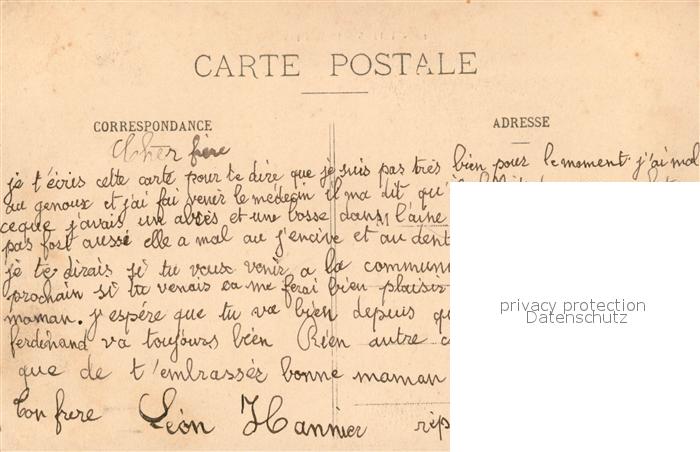 CARTE POSTALE
CORRESPONDANCE
ADRESSE
Cher frère
je t'écris cette carte pour te dire que je suis pas très bien pour le moment j'ai mal
au genoux et j'ai fai venir le médecin il ma dit qu'
ceque j'avais un abcès et une bosse dans l'aine
pas fort aussé elle a mal au j'encive et au dent
je te dirais si tu veux venir a la communi
prochain si tu venais ca me ferai bien plaisir
maman. j'espére que tu va bien depuis qu
ferdinand va toujours bien Rien autre c
que de t'embrasser bonne maman
ton frere Léon Hannier rép
privacy protection
Datenschutz